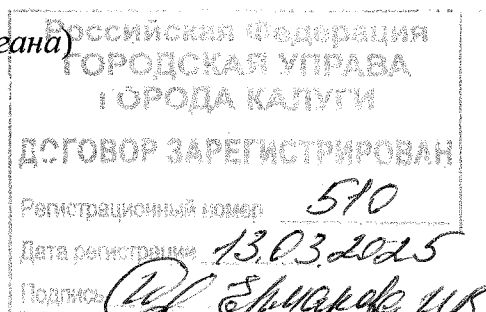 гана)
Российская Федерация
ГОРОДСКАЯ УПРАВА
ГОРОДА КАЛУГИ
ДОГОВОР ЗАРЕГИСТРИРОВАН
Регистрационный номер 510
Дата регистрации 13.03.2025
Подпись Ермакова